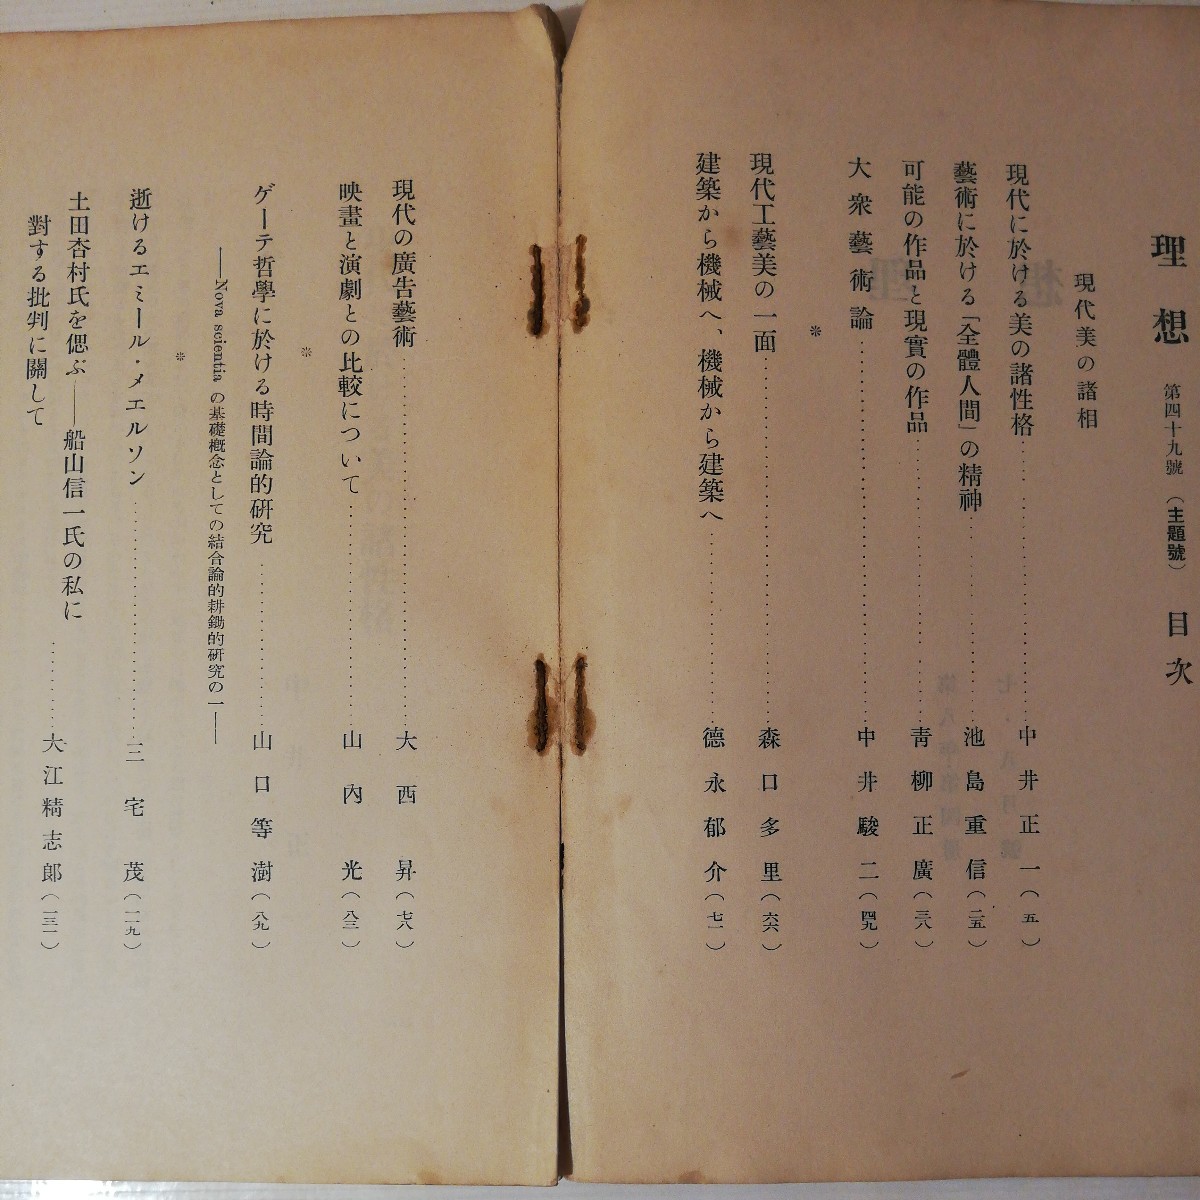 理想 第四十九號 (主題號) 目次
現代美の諸相
現代に於ける美の諸性格……中井正一(五)
藝術に於ける「全體人間」の精神……池島重信(二五)
可能の作品と現實の作品……靑柳正廣(三八)
大衆藝術論……中井駿二(四九)
※
現代工藝美の一面……森口多里(六六)
建築から機械へ、機械から建築へ……德永郁介(七一)
現代の廣告藝術……大西昇(七六)
映畫と演劇との比較について……山內光(八三)
※
ゲーテ哲學に於ける時間論的硏究……山口等澍(八九)
——Nova scientia の基礎槪念としての結合論的耕鋤的硏究の一——
※
逝けるエミール・メエルソン……三宅茂(一一九)
土田杏村氏を偲ぶ——船山信一氏の私に
對する批判に關して……大江精志郞(一三一)